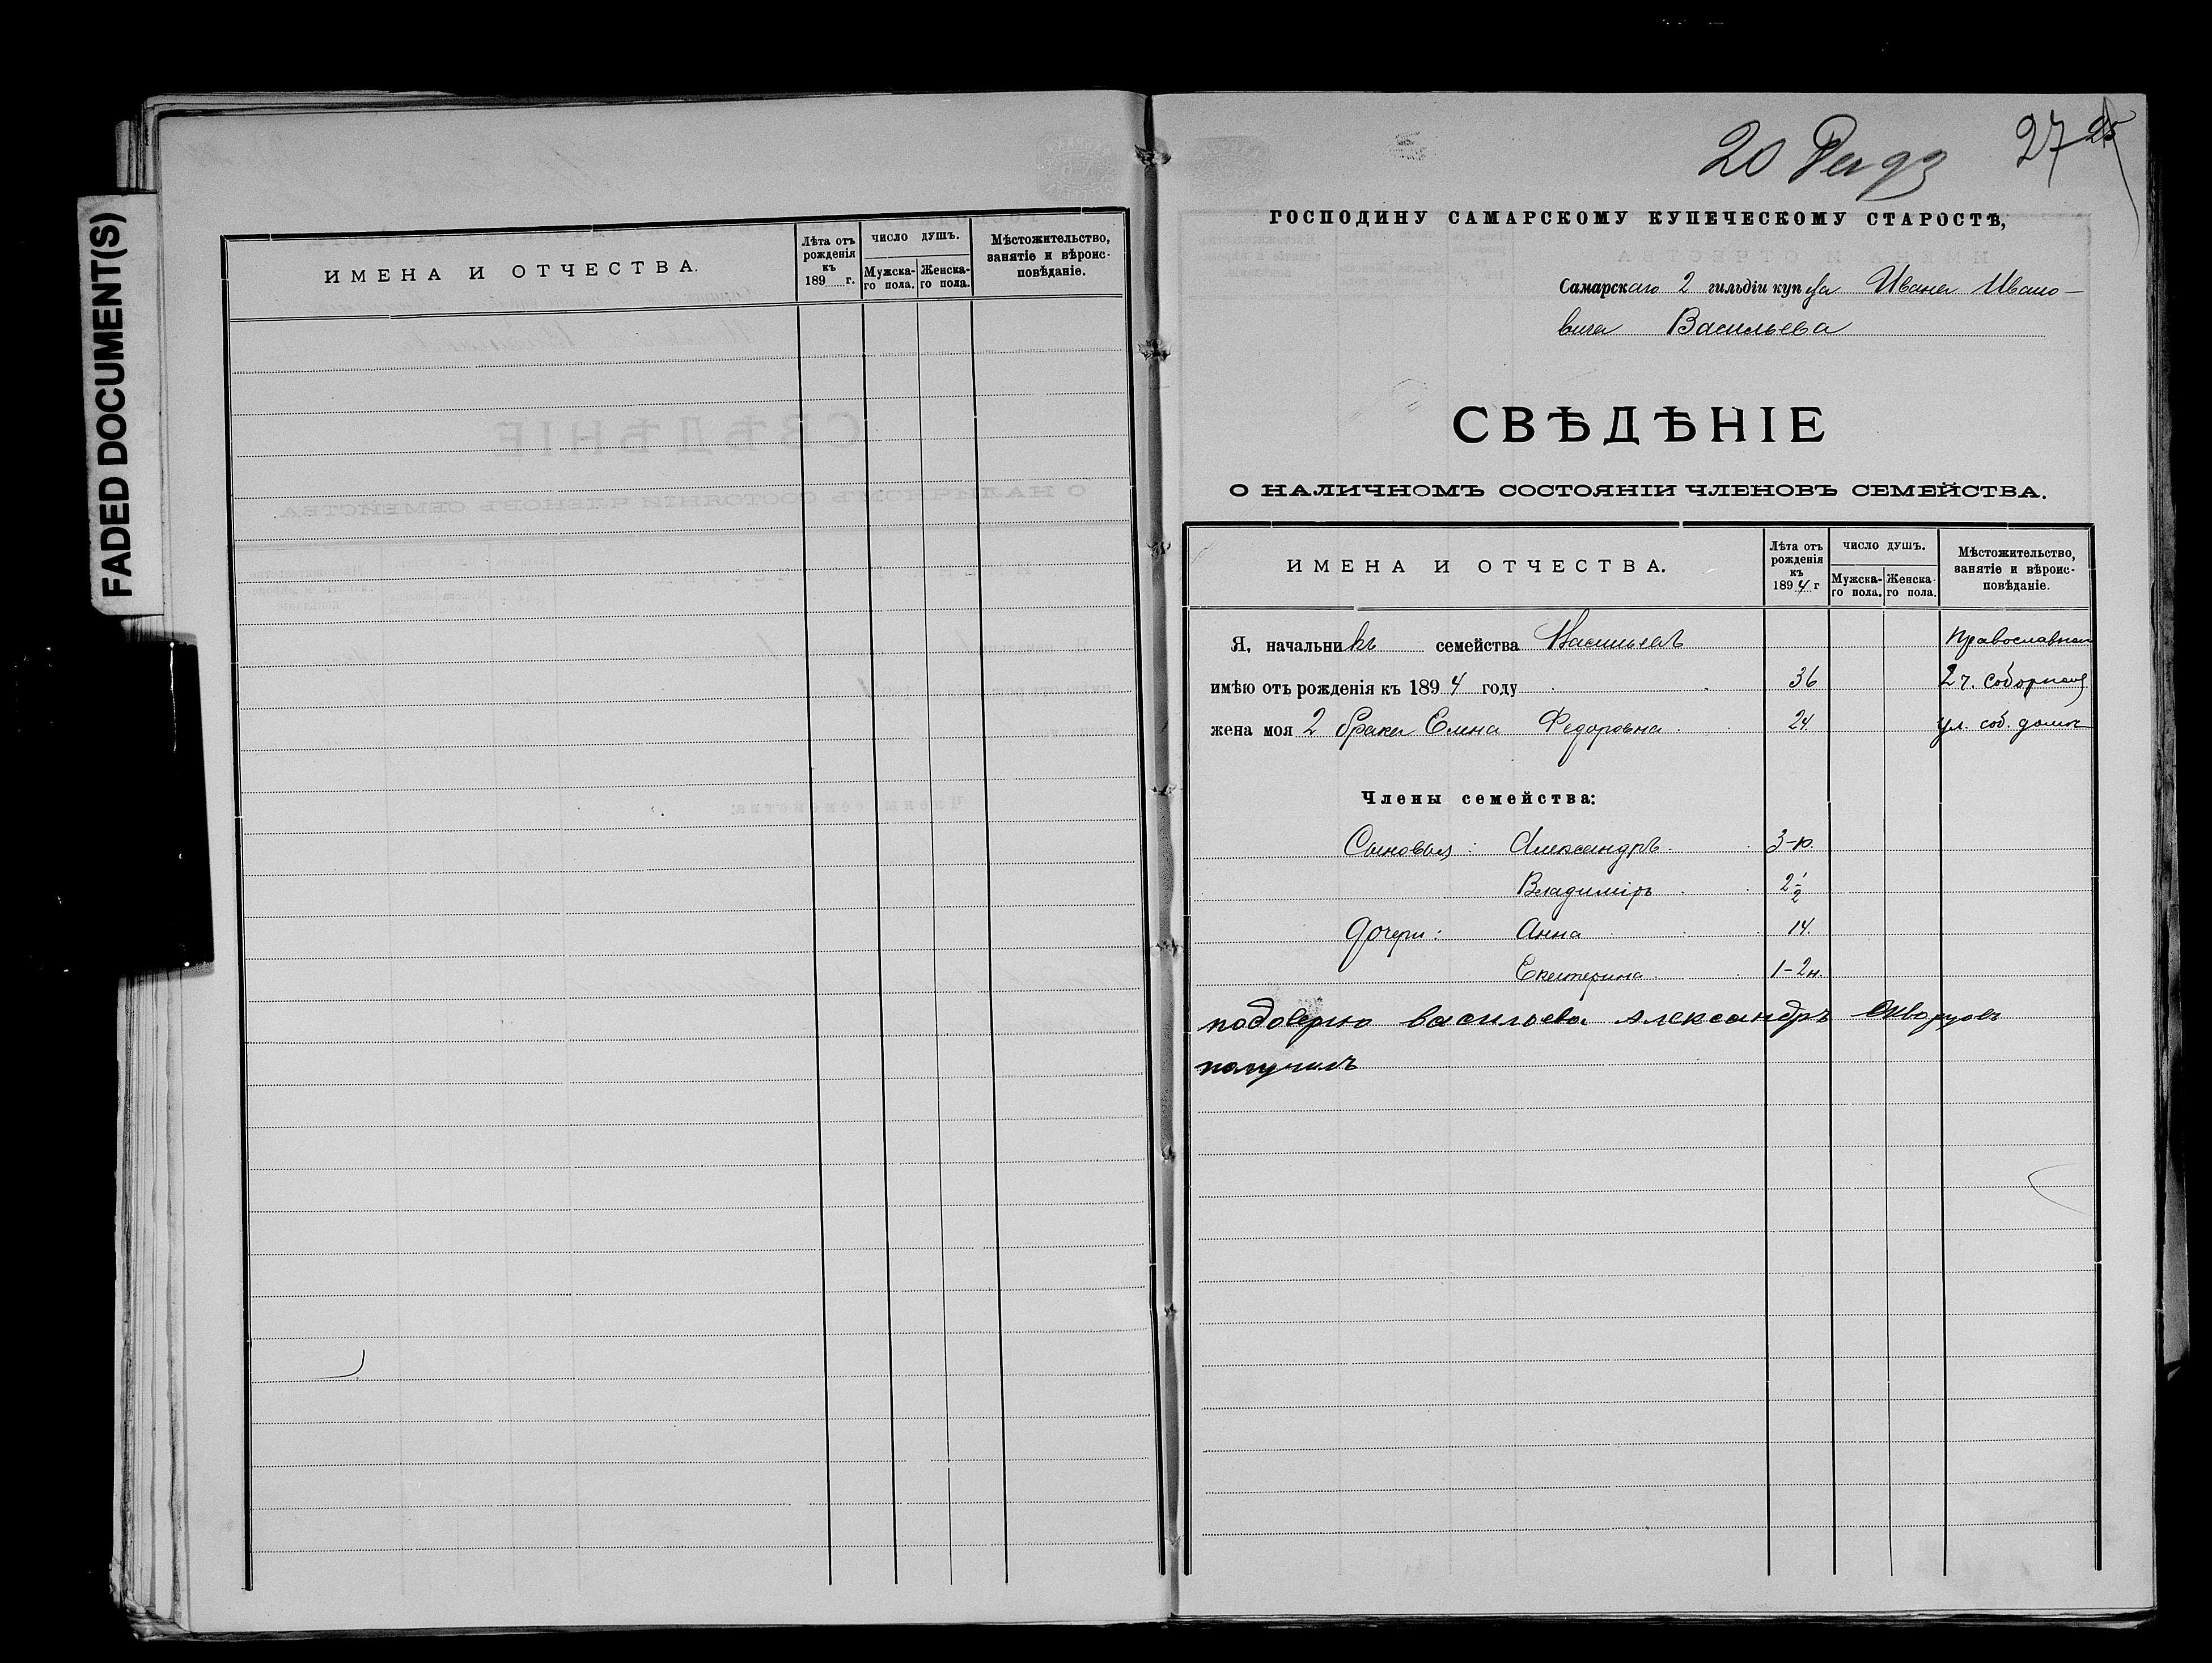 FADED DOCUMENT(S)
ИМЕНА И ОТЧЕСТВА.
Лѣта отъ рожденія къ 189 г.
ЧИСЛО ДУШЪ.
Мужска-го пола.
Женска-го пола.
Мѣстожительство, занятіе и вѣроис-повѣданіе.
20 Декаб 93
27
ГОСПОДИНУ САМАРСКОМУ КУПЕЧЕСКОМУ СТАРОСТѢ,
Самарскаго 2 гильдіи купца Ивана Ивано-
вича Васильева
СВѢДѢНІЕ
О НАЛИЧНОМЪ СОСТОЯНІИ ЧЛЕНОВЪ СЕМЕЙСТВА.
ИМЕНА И ОТЧЕСТВА.
Лѣта отъ рожденія къ 1894 г
ЧИСЛО ДУШЪ.
Мужска-го пола.
Женска-го пола.
Мѣстожительство, занятіе и вѣроис-повѣданіе.
Я, начальникъ семейства Васильевъ Православной
имѣю отъ рожденія къ 1894 году 36 2 ч. Соборной
жена моя 2 брака Елена Федоровна 24 ул. соб. домъ
Члены семейства:
Сыновья: Александръ 3-
Владиміръ 2½
Дочери: Анна 14.
Екатерина 1-2 н.
подоверию васильева александръ
получилъ